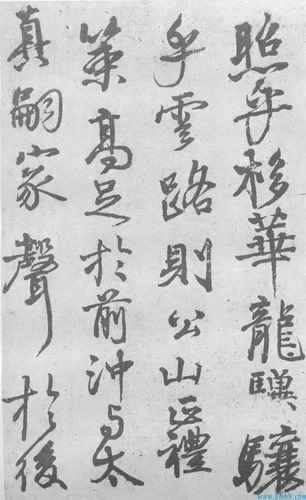 照乎移華龍驤
乎雲路則公山正禮
策高足於前沖与太
真嗣家聲於後